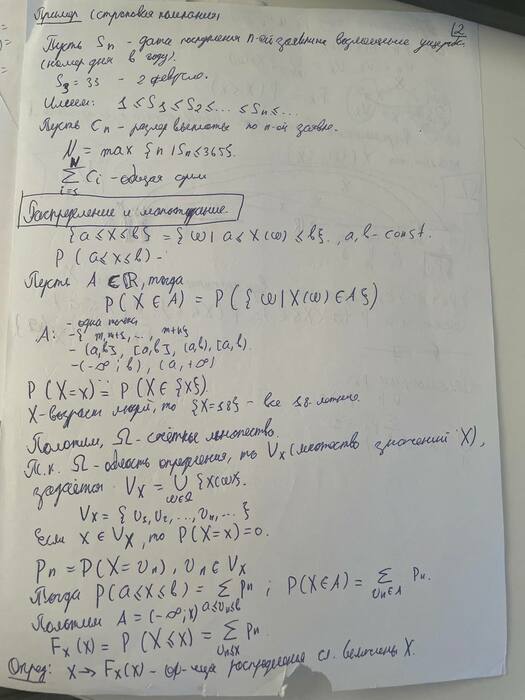 Пример (страховая компания) 2
Пусть Sn - дата поступления n-ой заявки на возмещение ущерба.
(номер дня в году).
S₃ = 33 - 2 февраля.
Имеем: 1 ≤ S₁ ≤ S₂ ≤ ... ≤ Sn ≤ ...
Пусть Cn - размер выплаты по n-ой заявке.
N = max {n | Sn ≤ 365}.
N∑i=1 Ci - общая сумм
Распределение и
{a ≤ X ≤ b} = {ω | a ≤ X(ω) ≤ b}, a, b - const.
P (a ≤ x ≤ b) -
Пусть A ⊂ ℝ, тогда
P(X ∈ A) = P({ω | X(ω) ∈ A})
A: - одна точка
- { m, m+1, ..., m+k}
- (a,b], [a,b], (a,b), [a,b).
- (-∞; b), (a, +∞)
P(X=x) = P(X ∈ {x}).
X - возраст людей, то {X=18} - все 18-летние.
Положим, Ω - счётное множество.
Т.к. Ω - область определения, то Vx (множество значений X),
задаётся Vx = ∪ω∈Ω {X(ω)}.
Vx = { υ₁, υ₂, ..., υn, ... }
Если x ∉ Vx, то P(X=x) = 0.
Pn = P(X = υn), υn ∈ Vx
Тогда P(a ≤ X ≤ b) = ∑a≤υn≤b Pn ; P(X∈A) = ∑υn∈A Pn.
Положим A = (-∞; x)
Fx(x) = P(X ≤ x) = ∑υn≤x Pn
Опред: x → Fx(x) - ф-ция распределения сл. величины X.